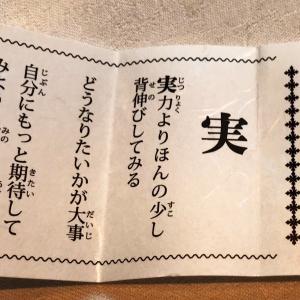 実
実力よりほんの少し
背伸びしてみる
どうなりたいかが大事
自分にもっと期待して